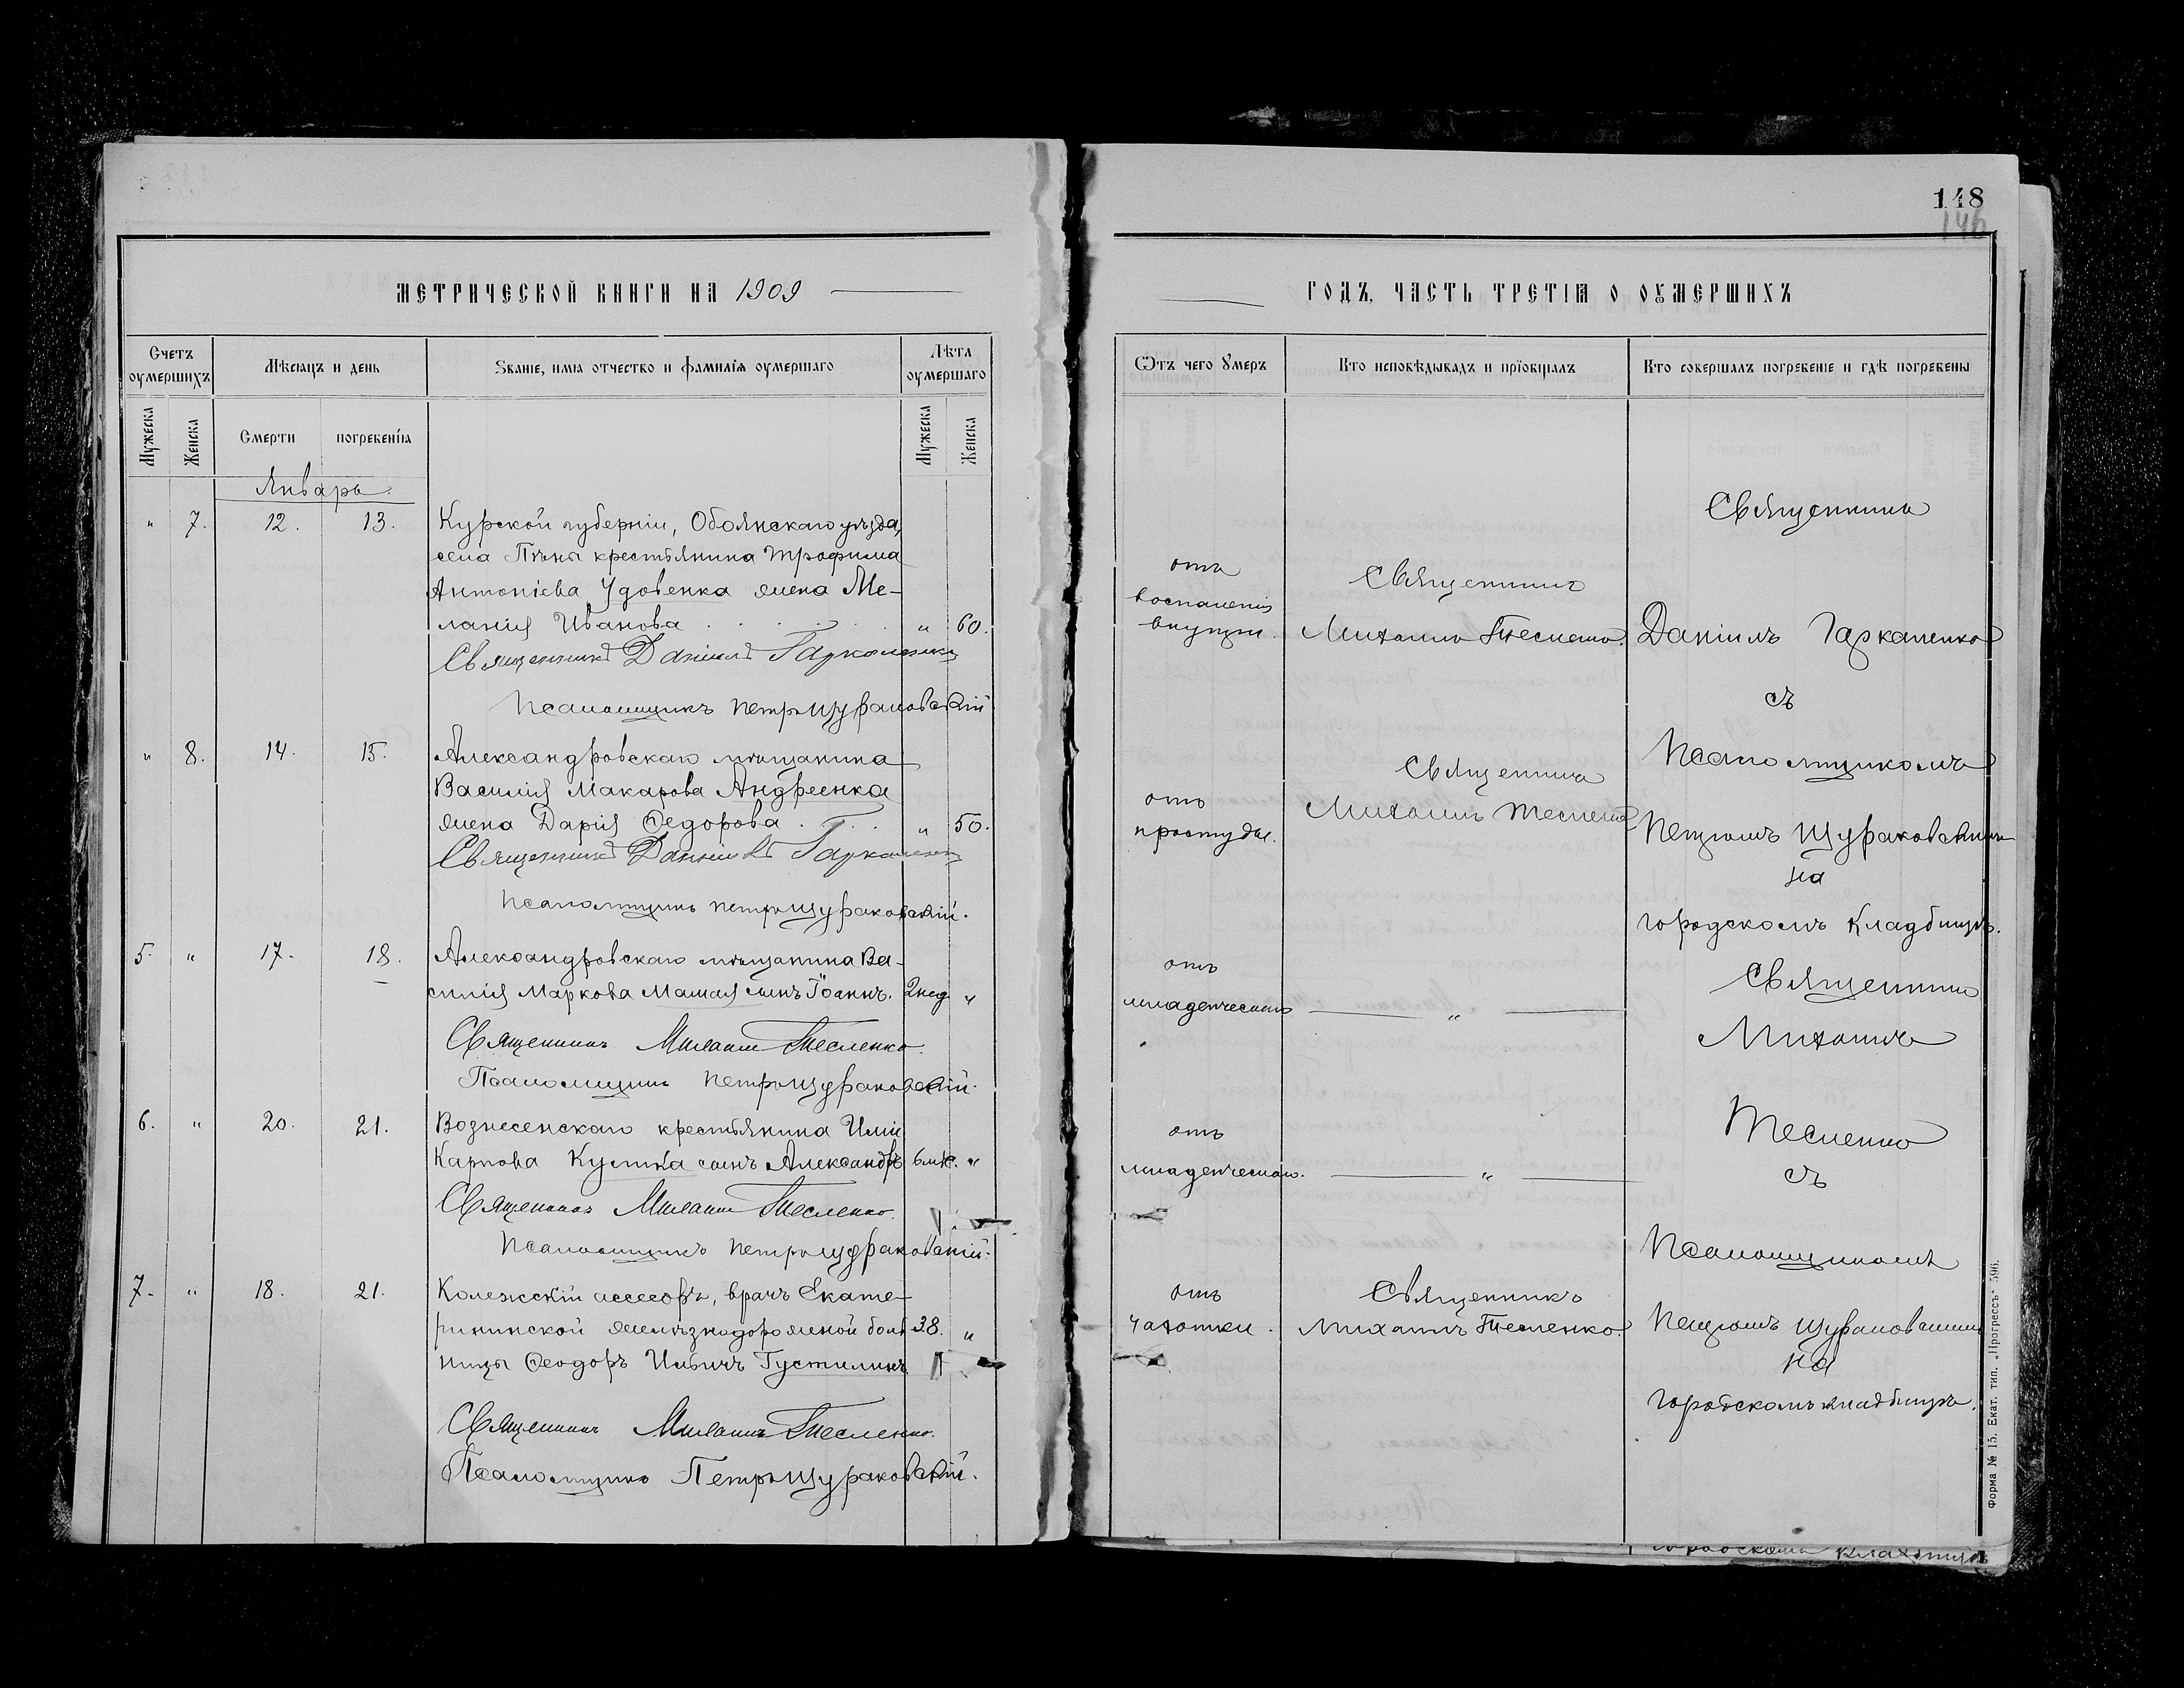 148
146
МЕТРИЧЕСКОЙ КНИГИ НА 1909
ГОДЪ, ЧАСТЬ ТРЕТІЯ О ОУМЕРШИХЪ
Счетъ оумершихъ
Мѣсяцъ и день
Званіе, имя отчество и фамилія оумершаго
Лѣта оумершаго
Мужеска
Женска
Смерти
погребенія
Мужеска
Женска
Ѿтъ чего умеръ
Кто исповѣдывалъ и пріобщалъ
Кто совершалъ погребеніе и гдѣ погребены
Январь.
" 7. 12. 13. Курской губерніи, Обоянскаго уѣзда,
села Пѣны крестьянина Трофима
Антоніева Удовенка жена Ме-
ланія Иванова . . . . . " 60.
Священникъ Даніилъ Гаркаленко
Псаломщикъ Петръ Щураковскій
отъ
воспаленія
внутри.
Священникъ
Михаилъ Тесленко.
" 8. 14. 15. Александровскаго мѣщанина
Василія Макарова Андреенка
жена Дарія Ѳедорова . . . " 50.
Священникъ Даніилъ Гаркаленко
Псаломщикъ Петръ Щураковскій.
отъ
простуды.
Священникъ
Михаилъ Тесленко
Священникъ
Даніилъ Гаркаленко
съ
Псаломщикомъ
Петромъ Щураковскимъ
на
городскомъ Кладбищѣ.
5. " 17. 18. Александровскаго мѣщанина Ва-
силія Маркова Мамая сынъ Іоаннъ. 2 нед. "
Священникъ Михаилъ Тесленко.
Псаломщикъ Петръ Щураковскій.
отъ
младенческаго
"
6. " 20. 21. Вознесенскаго крестьянина Иліи
Карпова Кулика сынъ Александръ 6 мѣс. "
Священникъ Михаилъ Тесленко.
Псаломщикъ Петръ Щураковскій.
отъ
младенческаго.
"
7. " 18. 21. Колежскій ассесоръ, врачъ Екате-
рининской желѣзнодорожной боль- 38. "
ницы Ѳеодоръ Ильичъ Густилинъ.
Священникъ Михаилъ Тесленко.
Псаломщикъ Петръ Щураковскій.
отъ
чахотки.
Священникъ
Михаилъ Тесленко.
Священникъ
Михаилъ
Тесленко
съ
Псаломщикомъ
Петромъ Щураковскимъ
на
Городскомъ кладбищѣ.
Форма № 15. Екат. тип. „Прогрессъ" 596.
городскомъ кладбищѣ